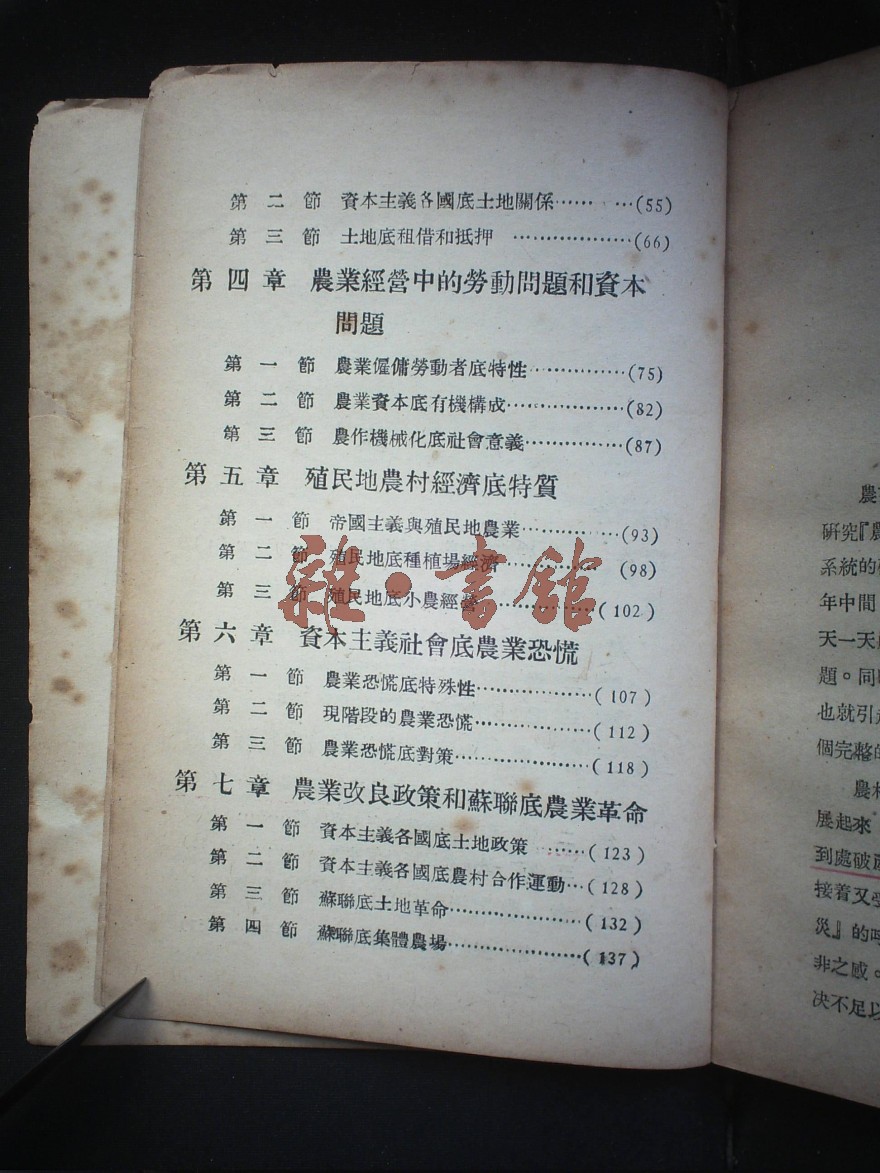 第二節 資本主義各國底土地關係…… …(55)
第三節 土地底租借和抵押 ………………(66)
第四章 農業經營中的勞動問題和資本
問題
第一節 農業僱傭勞動者底特性……………(75)
第二節 農業資本底有機構成………………(82)
第三節 農作機械化底社會意義……………(87)
第五章 殖民地農村經濟底特質
第一節 帝國主義與殖民地農業……………(93)
第二節 殖民地底種植場經濟…………… (98)
第三節 殖民地底小農經營 ……………(102)
雜·書館
第六章 資本主義社會底農業恐慌
第一節 農業恐慌底特殊性…………………(107)
第二節 現階段的農業恐慌…………………(112)
第三節 農業恐慌底對策……………………(118)
第七章 農業改良政策和蘇聯底農業革命
第一節 資本主義各國底土地政策 ………(123)
第二節 資本主義各國底農村合作運動…(128)
第三節 蘇聯底土地革命……………………(132)
第四節 蘇聯底集體農場……………………(137)
農
研究『農
系統的
年中間
天一天
題。同
也就引
個完整的
農村
展起來
到處破產
接着又受
災』的呼
非之感。
决不足以